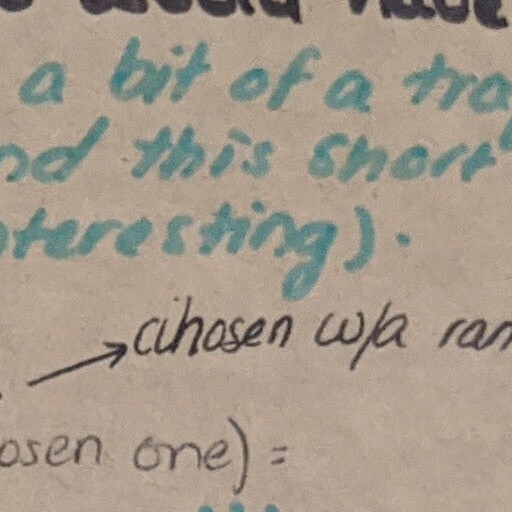 a bit of a tra
nd this short
nteresting).
(chosen w/a ran
osen one) =